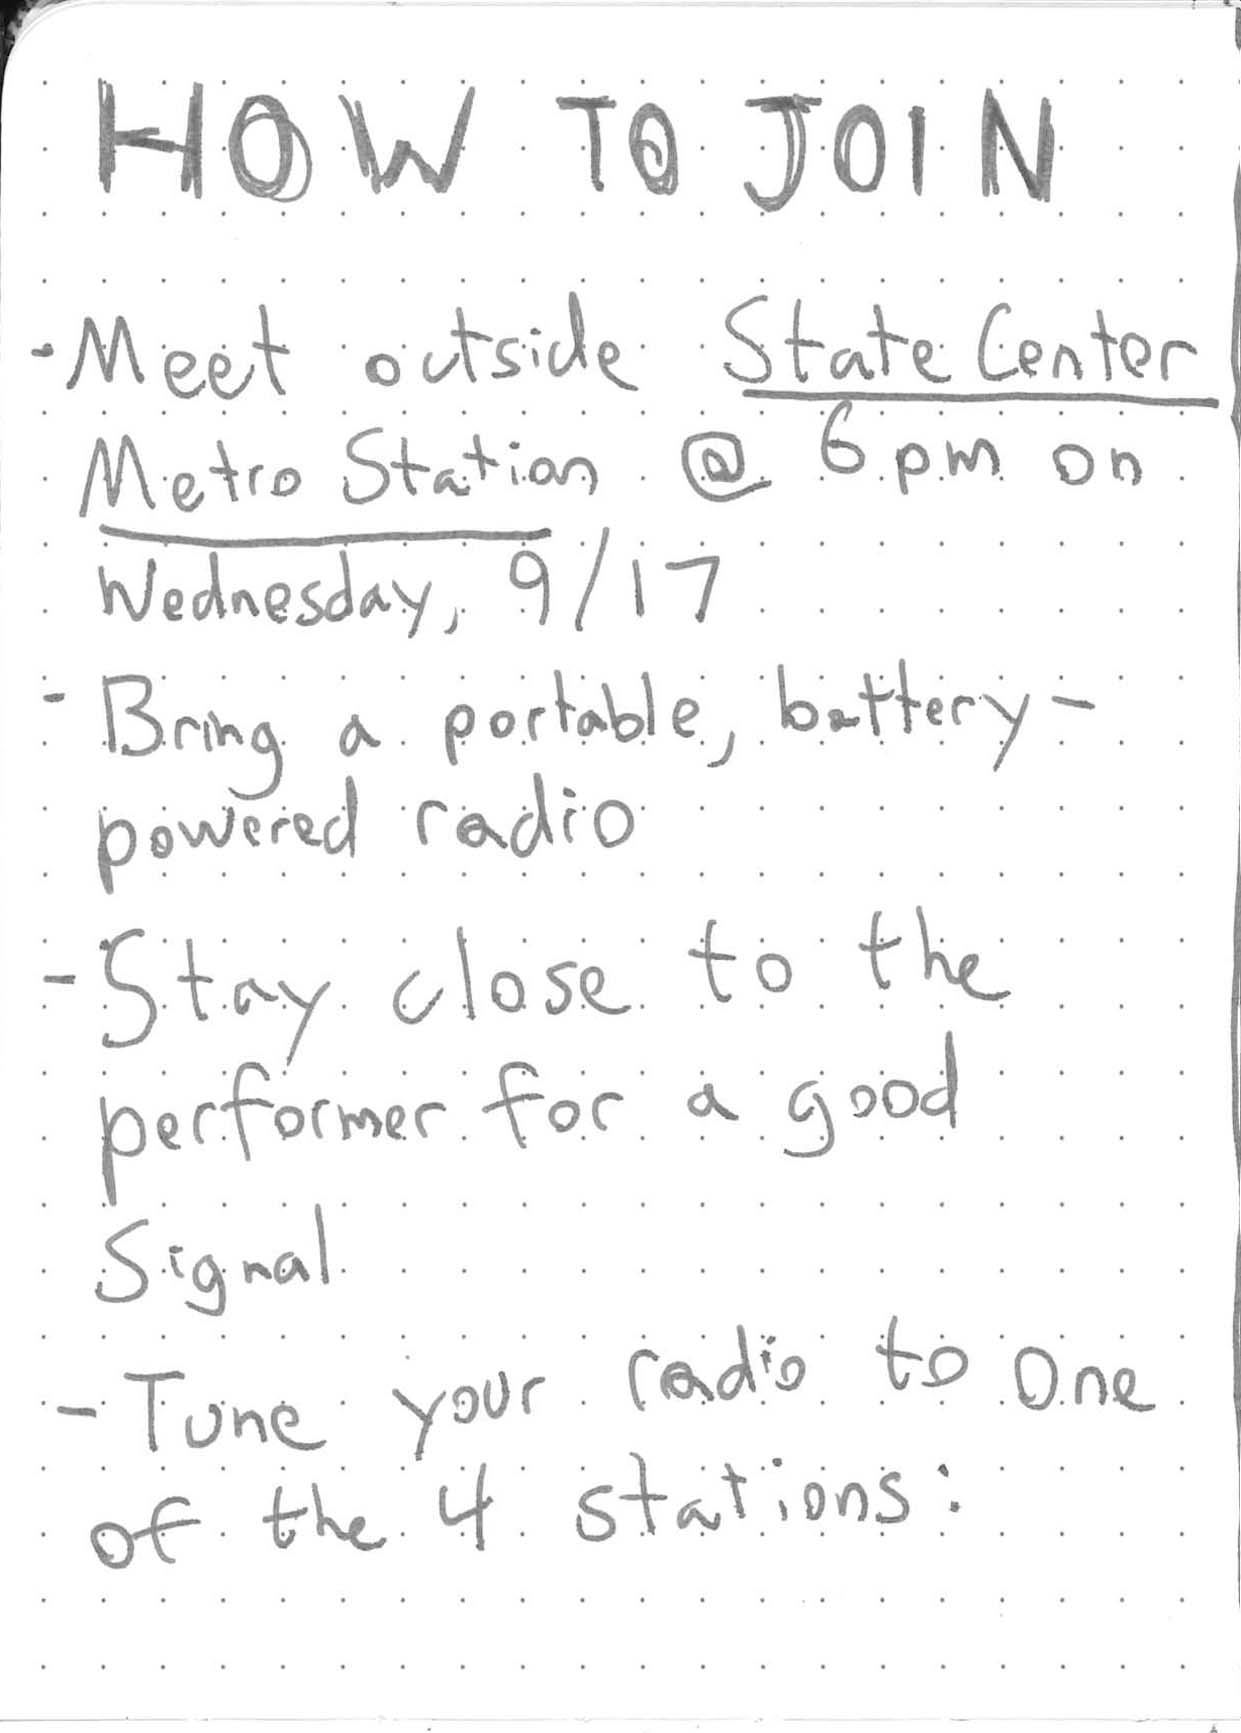 HOW TO JOIN
- Meet outside State Center
Metro Station @ 6pm on
Wednesday, 9/17
- Bring a portable, battery-
powered radio
- Stay close to the
performer for a good
Signal
- Tune your radio to One
of the 4 stations: